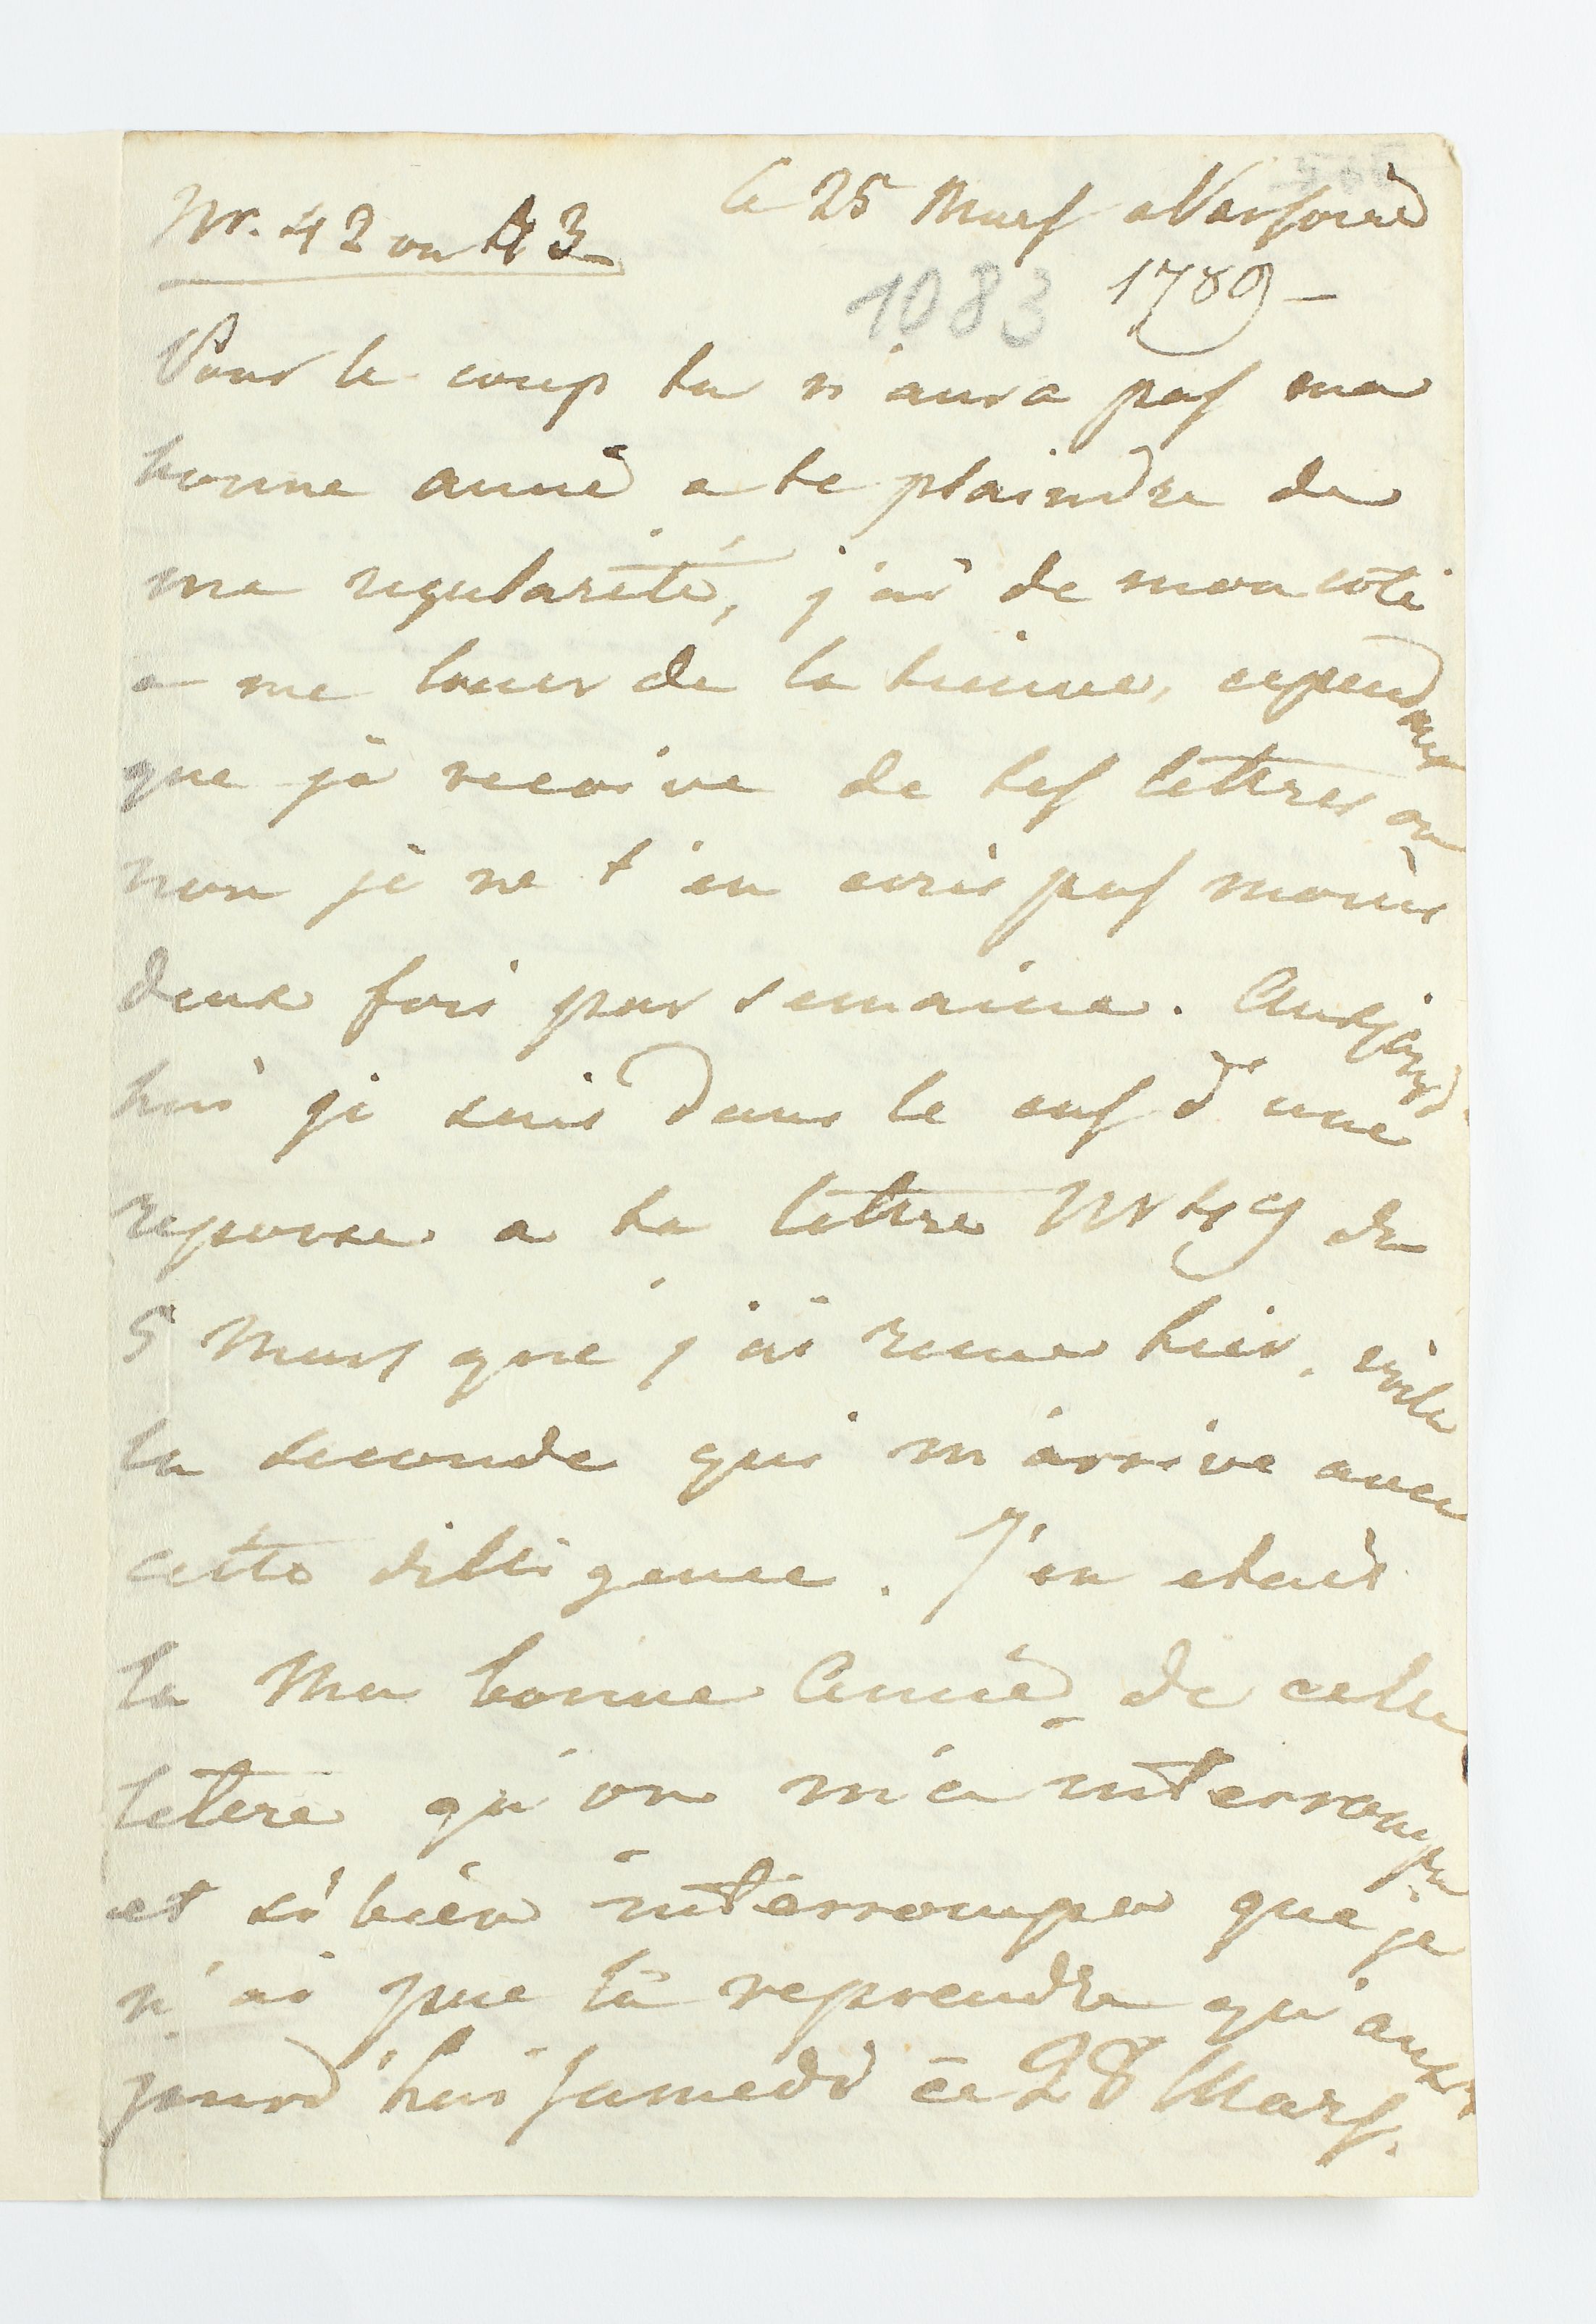 Nr. 42 ou 43
le 25 Mars a Varsovie
1083 1789 –
Pour le coup tu n'aura pas ma
bonne amie a te plaindre de
ma regularité, j'ai de mon coté
a me louer de la tienne, cependant
que je recoive de tes lettres ou
non je ne t'en ecris pas moins
deux fois par semaine. Aujourd
hui je suis dans le cas d'une
reponse a ta lettre Nr 49 de
5 Mars que j'ai recue hier, voila
la seconde qui m'arrive avec
cette dilligence. J'en etais
la Ma bonne Amie de cette
lettre qu'on m'a interrompu
et si bien interrompu que je
n'ai pue la reprendre qu'aus
jourd'hui Samedi ce 28 Mars.